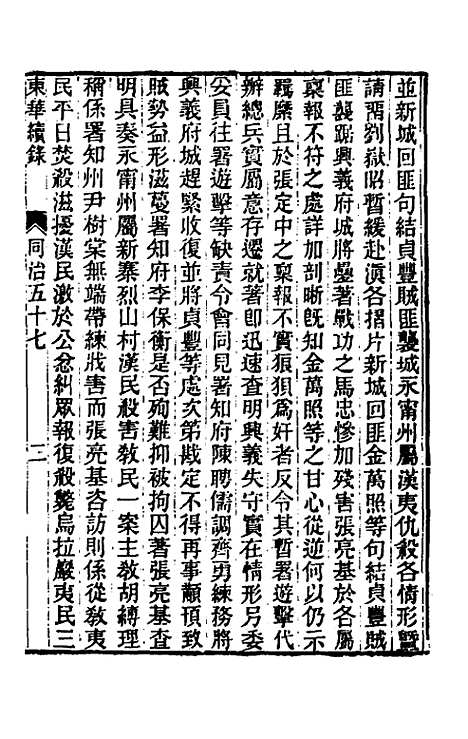 並新城回匪句結貞豐賊匪襲城永甯州屬漢夷仇殺各情形暨
請畱劉嶽昭暫緩赴滇各摺片新城回匪金萬照等句結貞豐賊
匪襲踞興義府城將曡著戰功之馬忠慘加殘害張亮基於各屬
稟報不符之處詳加剖晰旣知金萬照等之甘心從逆何以仍示
羈縻且於張定中之稟報不實狼狽爲奸者反令其暫署遊擊代
辦總兵實屬意存遷就著卽迅速查明興義失守實在情形另委
妥員往署遊擊等缺責令會同見署知府陳聘儒調齊勇練務將
興義府城趕緊收復並將貞豐等處次第戡定不得再事顢頇致
賊勢益形滋蔓署知府李保衡是否殉難抑被拘囚著張亮基查
明具奏永甯州屬新寨烈山村漢民殺害敎民一案主敎胡縛理
稱係署知州尹樹棠無端帶練戕害而張亮基咨訪則係從敎夷
民平日焚殺滋擾漢民激於公忿糾眾報復殺斃烏拉嚴夷民三
東華續錄
同治五十七
二